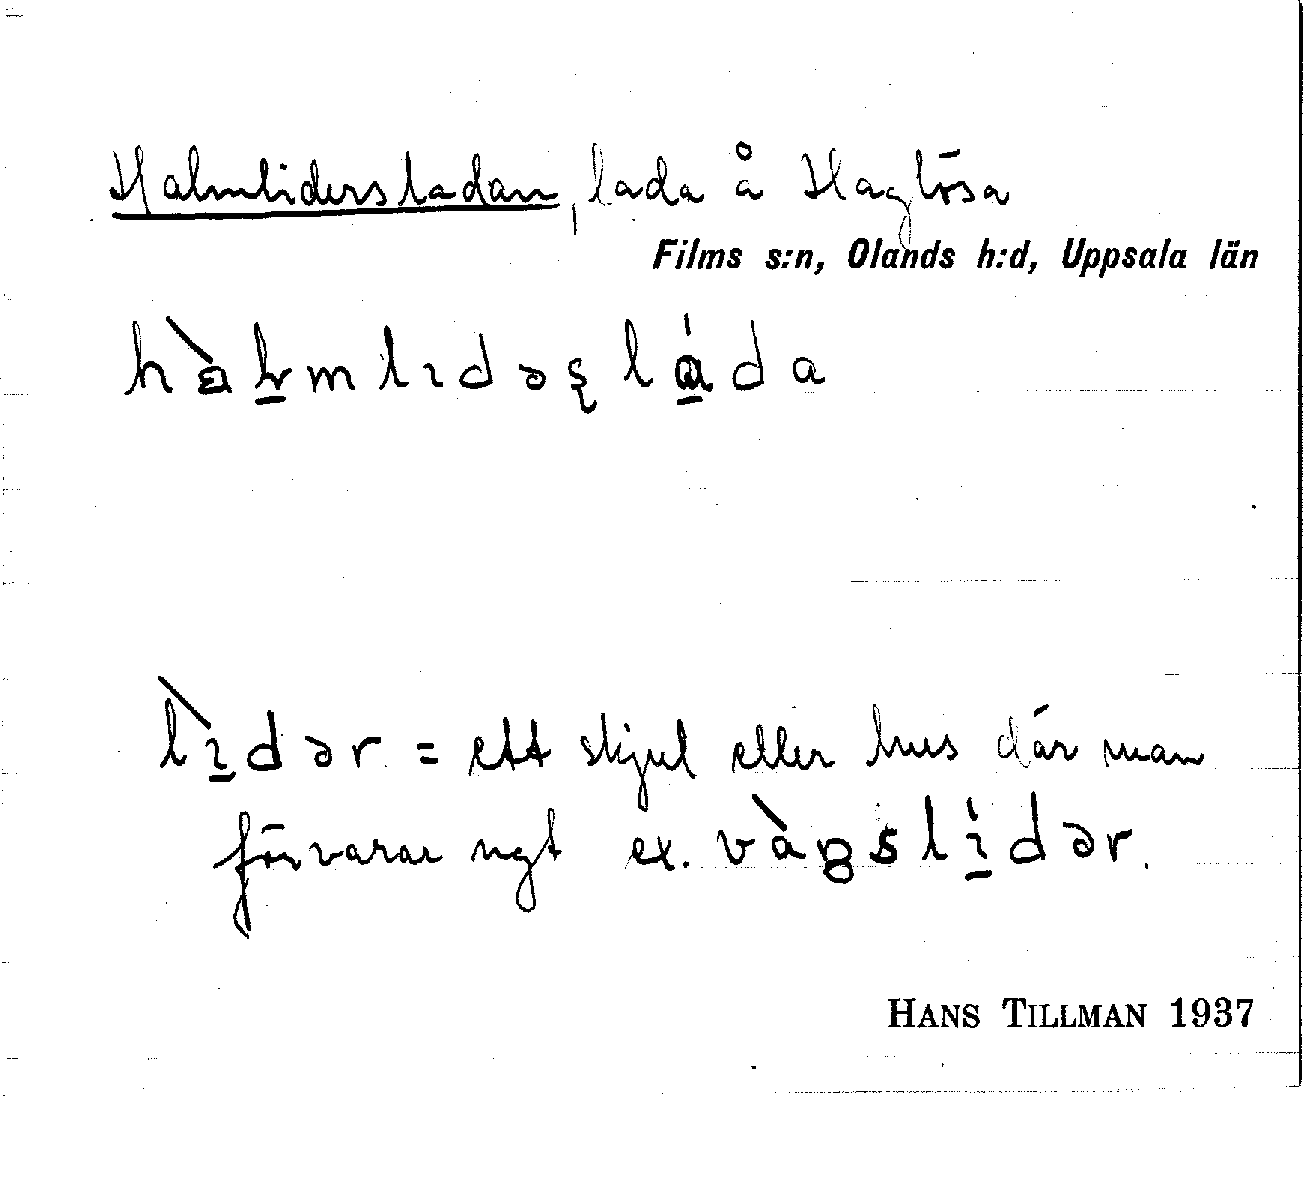 Halmlidersladan, lada å Haglösa
Films s:n, Olands h:d, Uppsala län
hàḻmlıdəʂláda
lı̀dər = ett skjul eller hus där man
förvarar ngt ex. vàgslı́dər.
HANS TILLMAN 1937